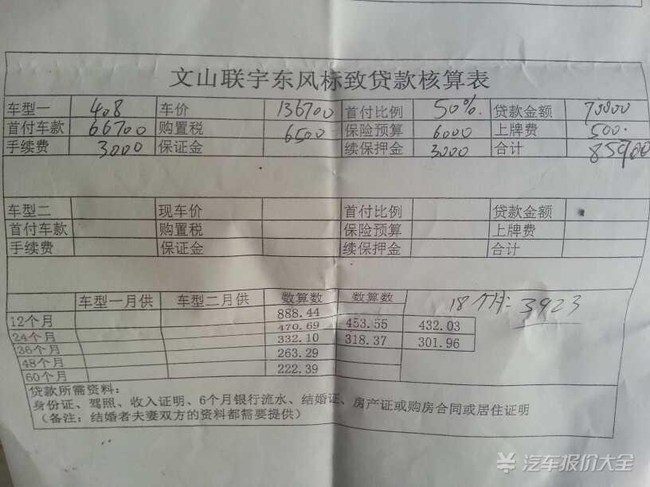 文山联宇东风标致贷款核算表
车型一 408 车价 136700 首付比例 50% 贷款金额 70000
首付车款 66700 购置税 6500 保险预算 6000 上牌费 500.
手续费 3000 保证金 续保押金 3000 合计 85900
车型二 现车价 首付比例 贷款金额
首付车款 购置税 保险预算 上牌费
手续费 保证金 续保押金 合计
车型一月供 车型二月供 数算数 数算数 18个月: 3923
12个月 888.44
24个月 470.69 453.55 432.03
36个月 332.10 318.37 301.96
48个月 263.29
60个月 222.39
贷款所需资料:
身份证、驾照、收入证明、6个月银行流水、结婚证、房产证或购房合同或居住证明
(备注:结婚者夫妻双方的资料都需要提供)
汽车报价大全